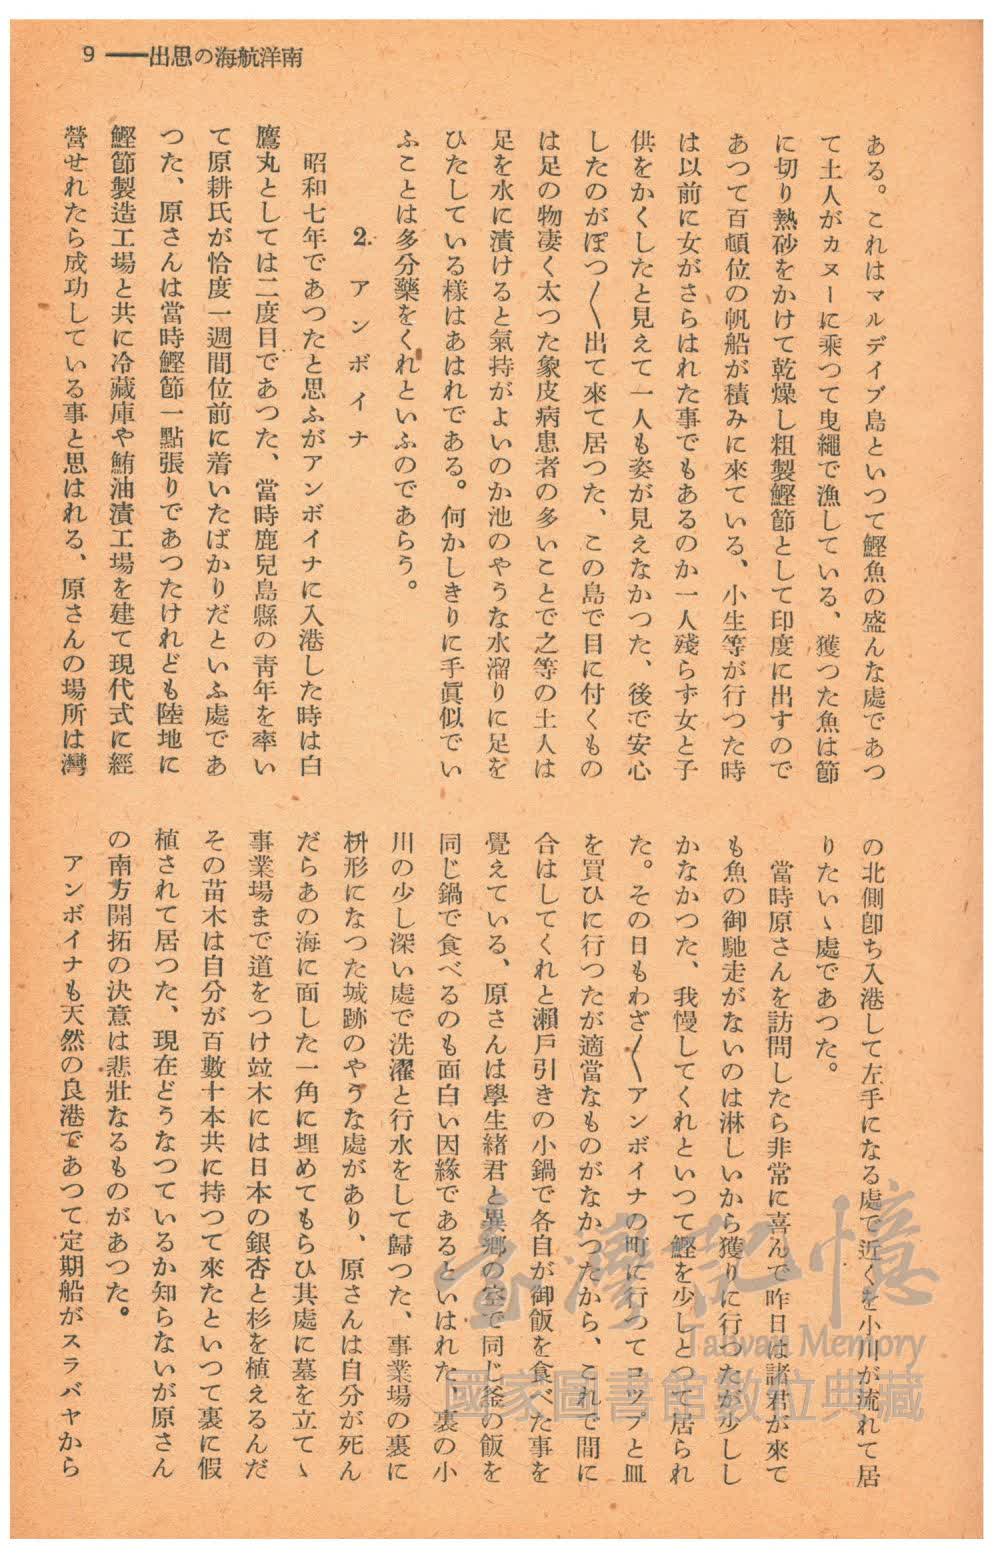 9 ――出思の海航洋南
ある。これはマルデイブ島といつて鰹魚の盛んな處であつ
て土人がカヌーに乘つて曳繩で漁している、獲つた魚は節
に切り熱砂をかけて乾燥し粗製鰹節として印度に出すので
あつて百頓位の帆船が積みに來ている、小生等が行つた時
は以前に女がさらはれた事でもあるのか一人殘らず女と子
供をかくしたと見えて一人も姿が見えなかつた、後で安心
したのがぽつ〱出て來て居つた、この島で目に付くもの
は足の物凄く太つた象皮病患者の多いことで之等の土人は
足を水に漬けると氣持がよいのか池のやうな水溜りに足を
ひたしている様はあはれである。何かしきりに手眞似でい
ふことは多分藥をくれといふのであらう。
2. アンボイナ
昭和七年であつたと思ふがアンボイナに入港した時は白
鷹丸としては二度目であつた、當時鹿兒島縣の靑年を率い
て原耕氏が恰度一週間位前に着いたばかりだといふ處であ
つた、原さんは當時鰹節一點張りであつたけれども陸地に
鰹節製造工場と共に冷藏庫や鮪油漬工場を建て現代式に經
營せれたら成功している事と思はれる、原さんの場所は灣
の北側卽ち入港して左手になる處で近くを小川が流れて居
りたいゝ處であつた。
當時原さんを訪問したら非常に喜んで昨日は諸君が來て
も魚の御馳走がないのは淋しいから獲りに行つたが少しし
かなかつた、我慢してくれといつて鰹を少しとつて居られ
た。その日もわざ〱アンボイナの町に行つてコツプと皿
を買ひに行つたが適當なものがなかつたから、これで間に
合はしてくれと瀨戶引きの小鍋で各自が御飯を食べた事を
覺えている、原さんは學生緖君と異鄕の室で同じ釜の飯を
同じ鍋で食べるのも面白い因緣であるといはれた、裏の小
川の少し深い處で洗濯と行水をして歸つた、事業場の裏に
枡形になつた城跡のやうな處があり、原さんは自分が死ん
だらあの海に面した一角に埋めてもらひ其處に墓を立てゝ
事業場まで道をつけ竝木には日本の銀杏と杉を植えるんだ
その苗木は自分が百數十本共に持つて來たといつて裏に假
植されて居つた、現在どうなつているか知らないが原さん
の南方開拓の決意は悲壯なるものがあつた。
アンボイナも天然の良港であつて定期船がスラバヤから
臺灣記憶
Taiwan Memory
國家圖書館數位典藏